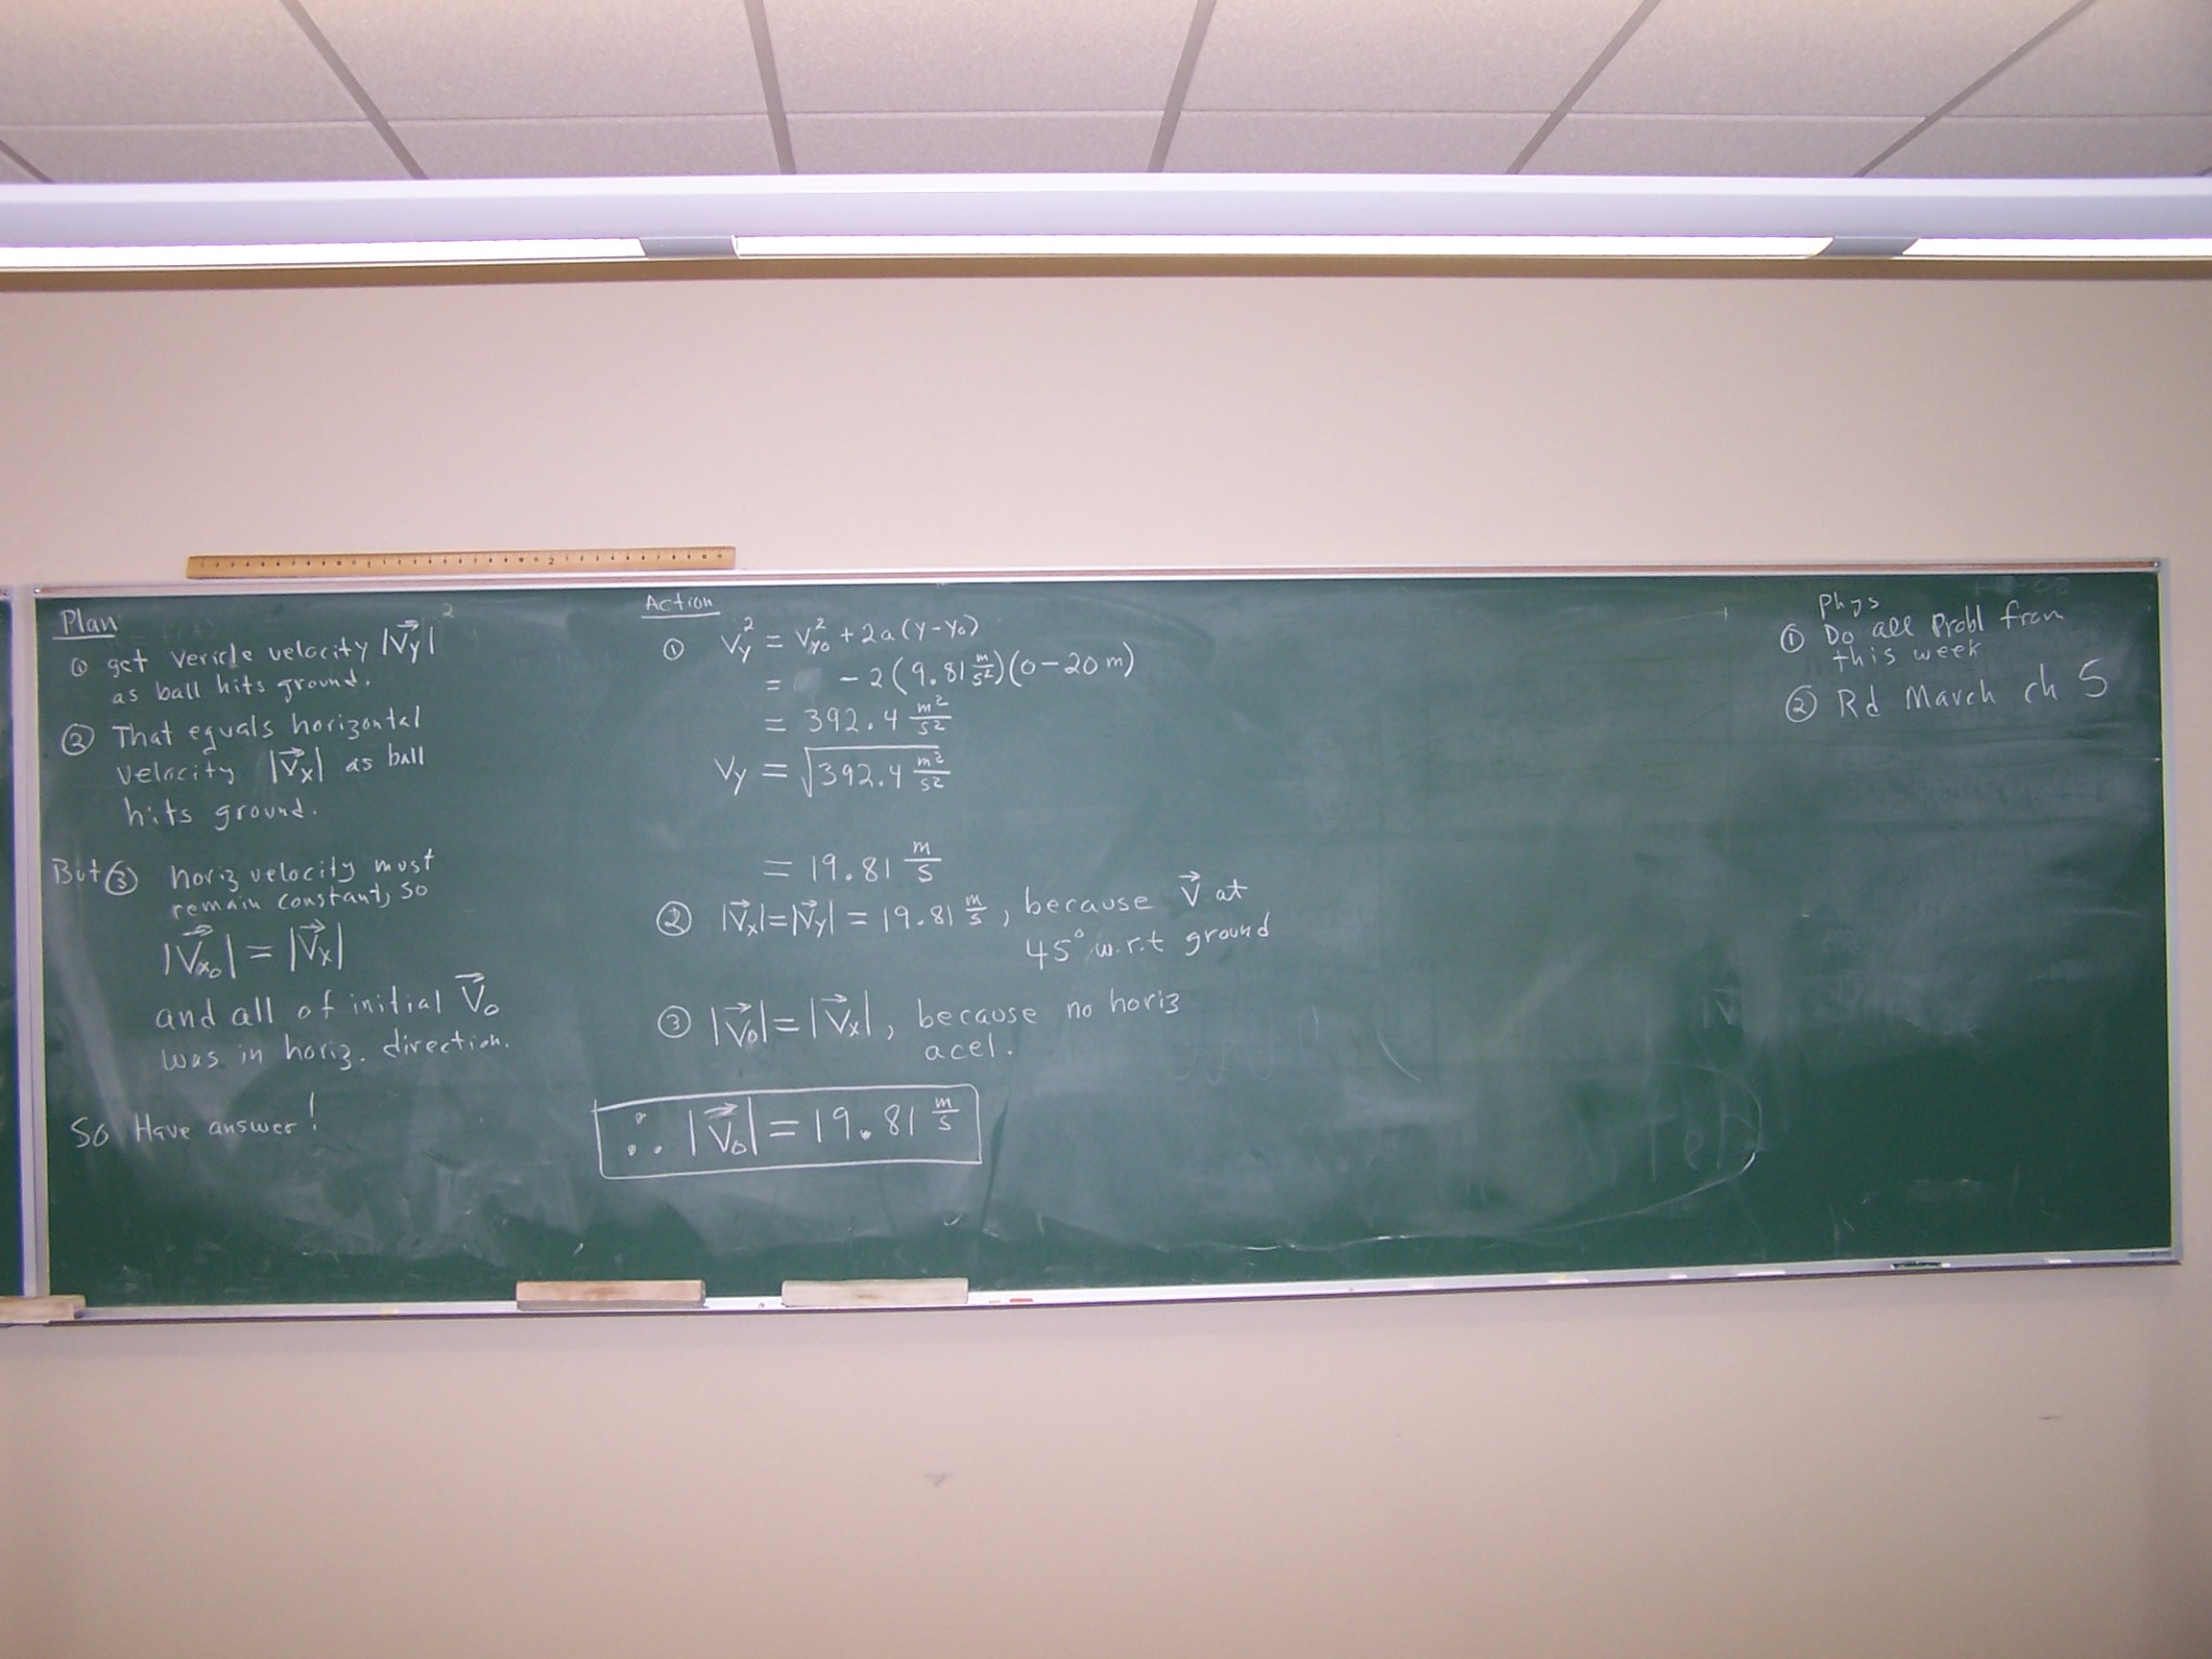 Plan
① get Vericle velocity |V⃗y|
as ball hits ground.
② That equals horizontal
velocity |V⃗x| as ball
hits ground.
But ③ horiz velocity must
remain constant, so
|V⃗x₀| = |V⃗x|
and all of initial V⃗₀
was in horiz. direction.
So Have answer!
Action
① Vy² = Vy₀² + 2a(y-y₀)
= -2(9.81 m/s²)(0-20m)
= 392.4 m²/s²
Vy = √392.4 m²/s²
= 19.81 m/s
② |V⃗x|=|V⃗y| = 19.81 m/s, because V⃗ at
45° w.r.t ground
③ |V⃗₀|=|V⃗x|, because no horiz
acel.
∴ |V⃗₀| = 19.81 m/s
Phys
① Do all Probl from
this week
② Rd March ch 5